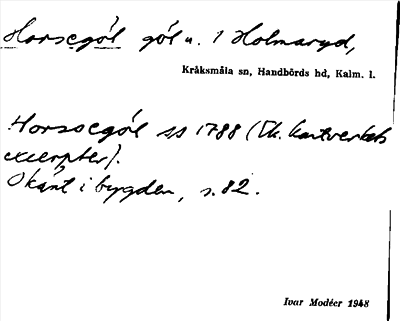 Horsegöl göl u. 1 Holmaryd,
Kråksmåla sn, Handbörds hd, Kalm. l.
Horssegöl ss 1788 (Ek. kartverkets
excerpter).
Okänt i bygden, s. 82.
Ivar Modéer 1948